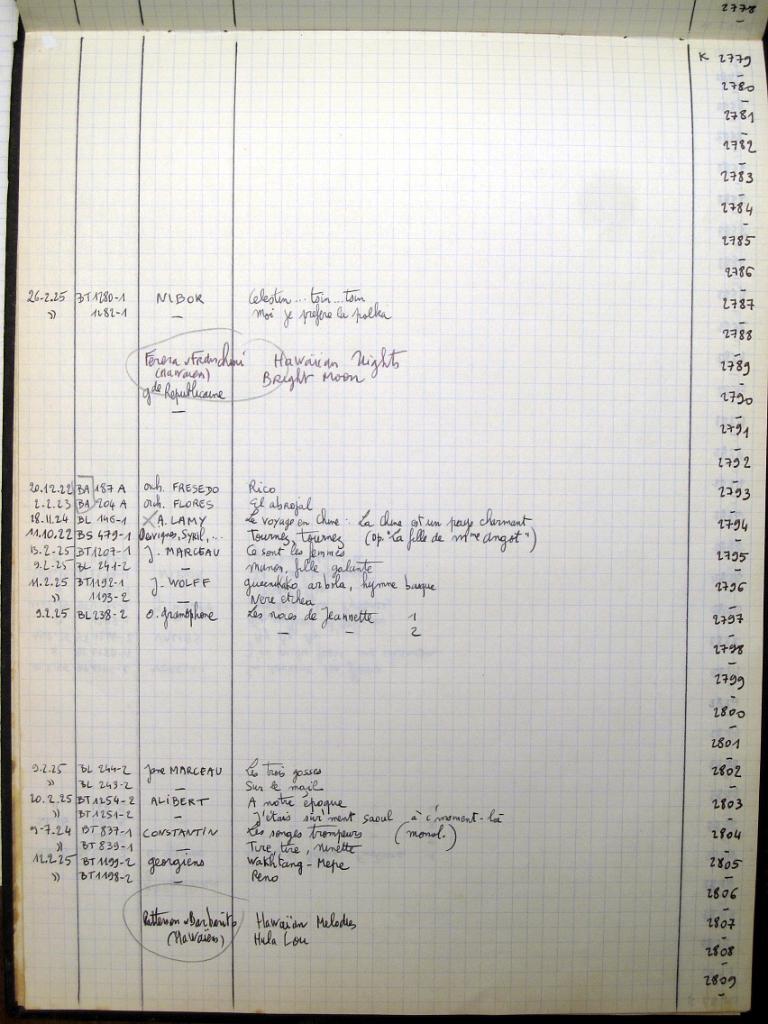 2778
K 2779
2780
2781
2782
2783
2784
2785
2786
26.2.25 BT 1280-1 NIBOR Celestin... toin... toin 2787
» 1282-1 — Moi je préfère la polka
2788
Ferera & Franchini Hawaiian Nights 2789
(Hawaïen) Bright Moon
gde Republicaine 2790
—
2791
2792
20.12.22 BA 187 A orch. FRESEDO Rico 2793
2.2.23 BA 204 A orch. FLORES El abrojal
18.11.24 BL 146-1 X A. LAMY Le voyage en Chine : La Chine est un pays charmant 2794
11.10.22 BS 479-1 Syril, ... Tournez, tournez (op. "La fille de Mme Angot")
13.2.25 BT 1207-1 J. MARCEAU Ce sont les femmes 2795
9.2.25 BL 241-2 — Manon, fille galante
11.2.25 BT 1192-1 J. WOLFF guernikako arbola, hymne basque 2796
» 1193-2 — Nere etchea
9.2.25 BL 238-2 o. gramophone Les noces de Jeannette 1 2797
— — 2
2798
2799
2800
2801
9.2.25 BL 244-2 Jane MARCEAU Les trois gosses 2802
» BL 243-2 — Sur le mail
20.2.25 BT 1254-2 ALIBERT A notre époque 2803
» BT 1251-2 — J'étais sûr'ment saoul à c'moment-là
9-7.24 BT 837-1 CONSTANTIN Les songes trompeurs (monol.) 2804
» BT 839-1 — Tire, tire, Ninette
12.2.25 BT 1199-2 georgiens Wakhtang - Mepe 2805
» BT 1198-2 — Reno
2806
Patterson & Barbarito Hawaiian Melodies 2807
(Hawaïens) Hula Lou
2808
2809